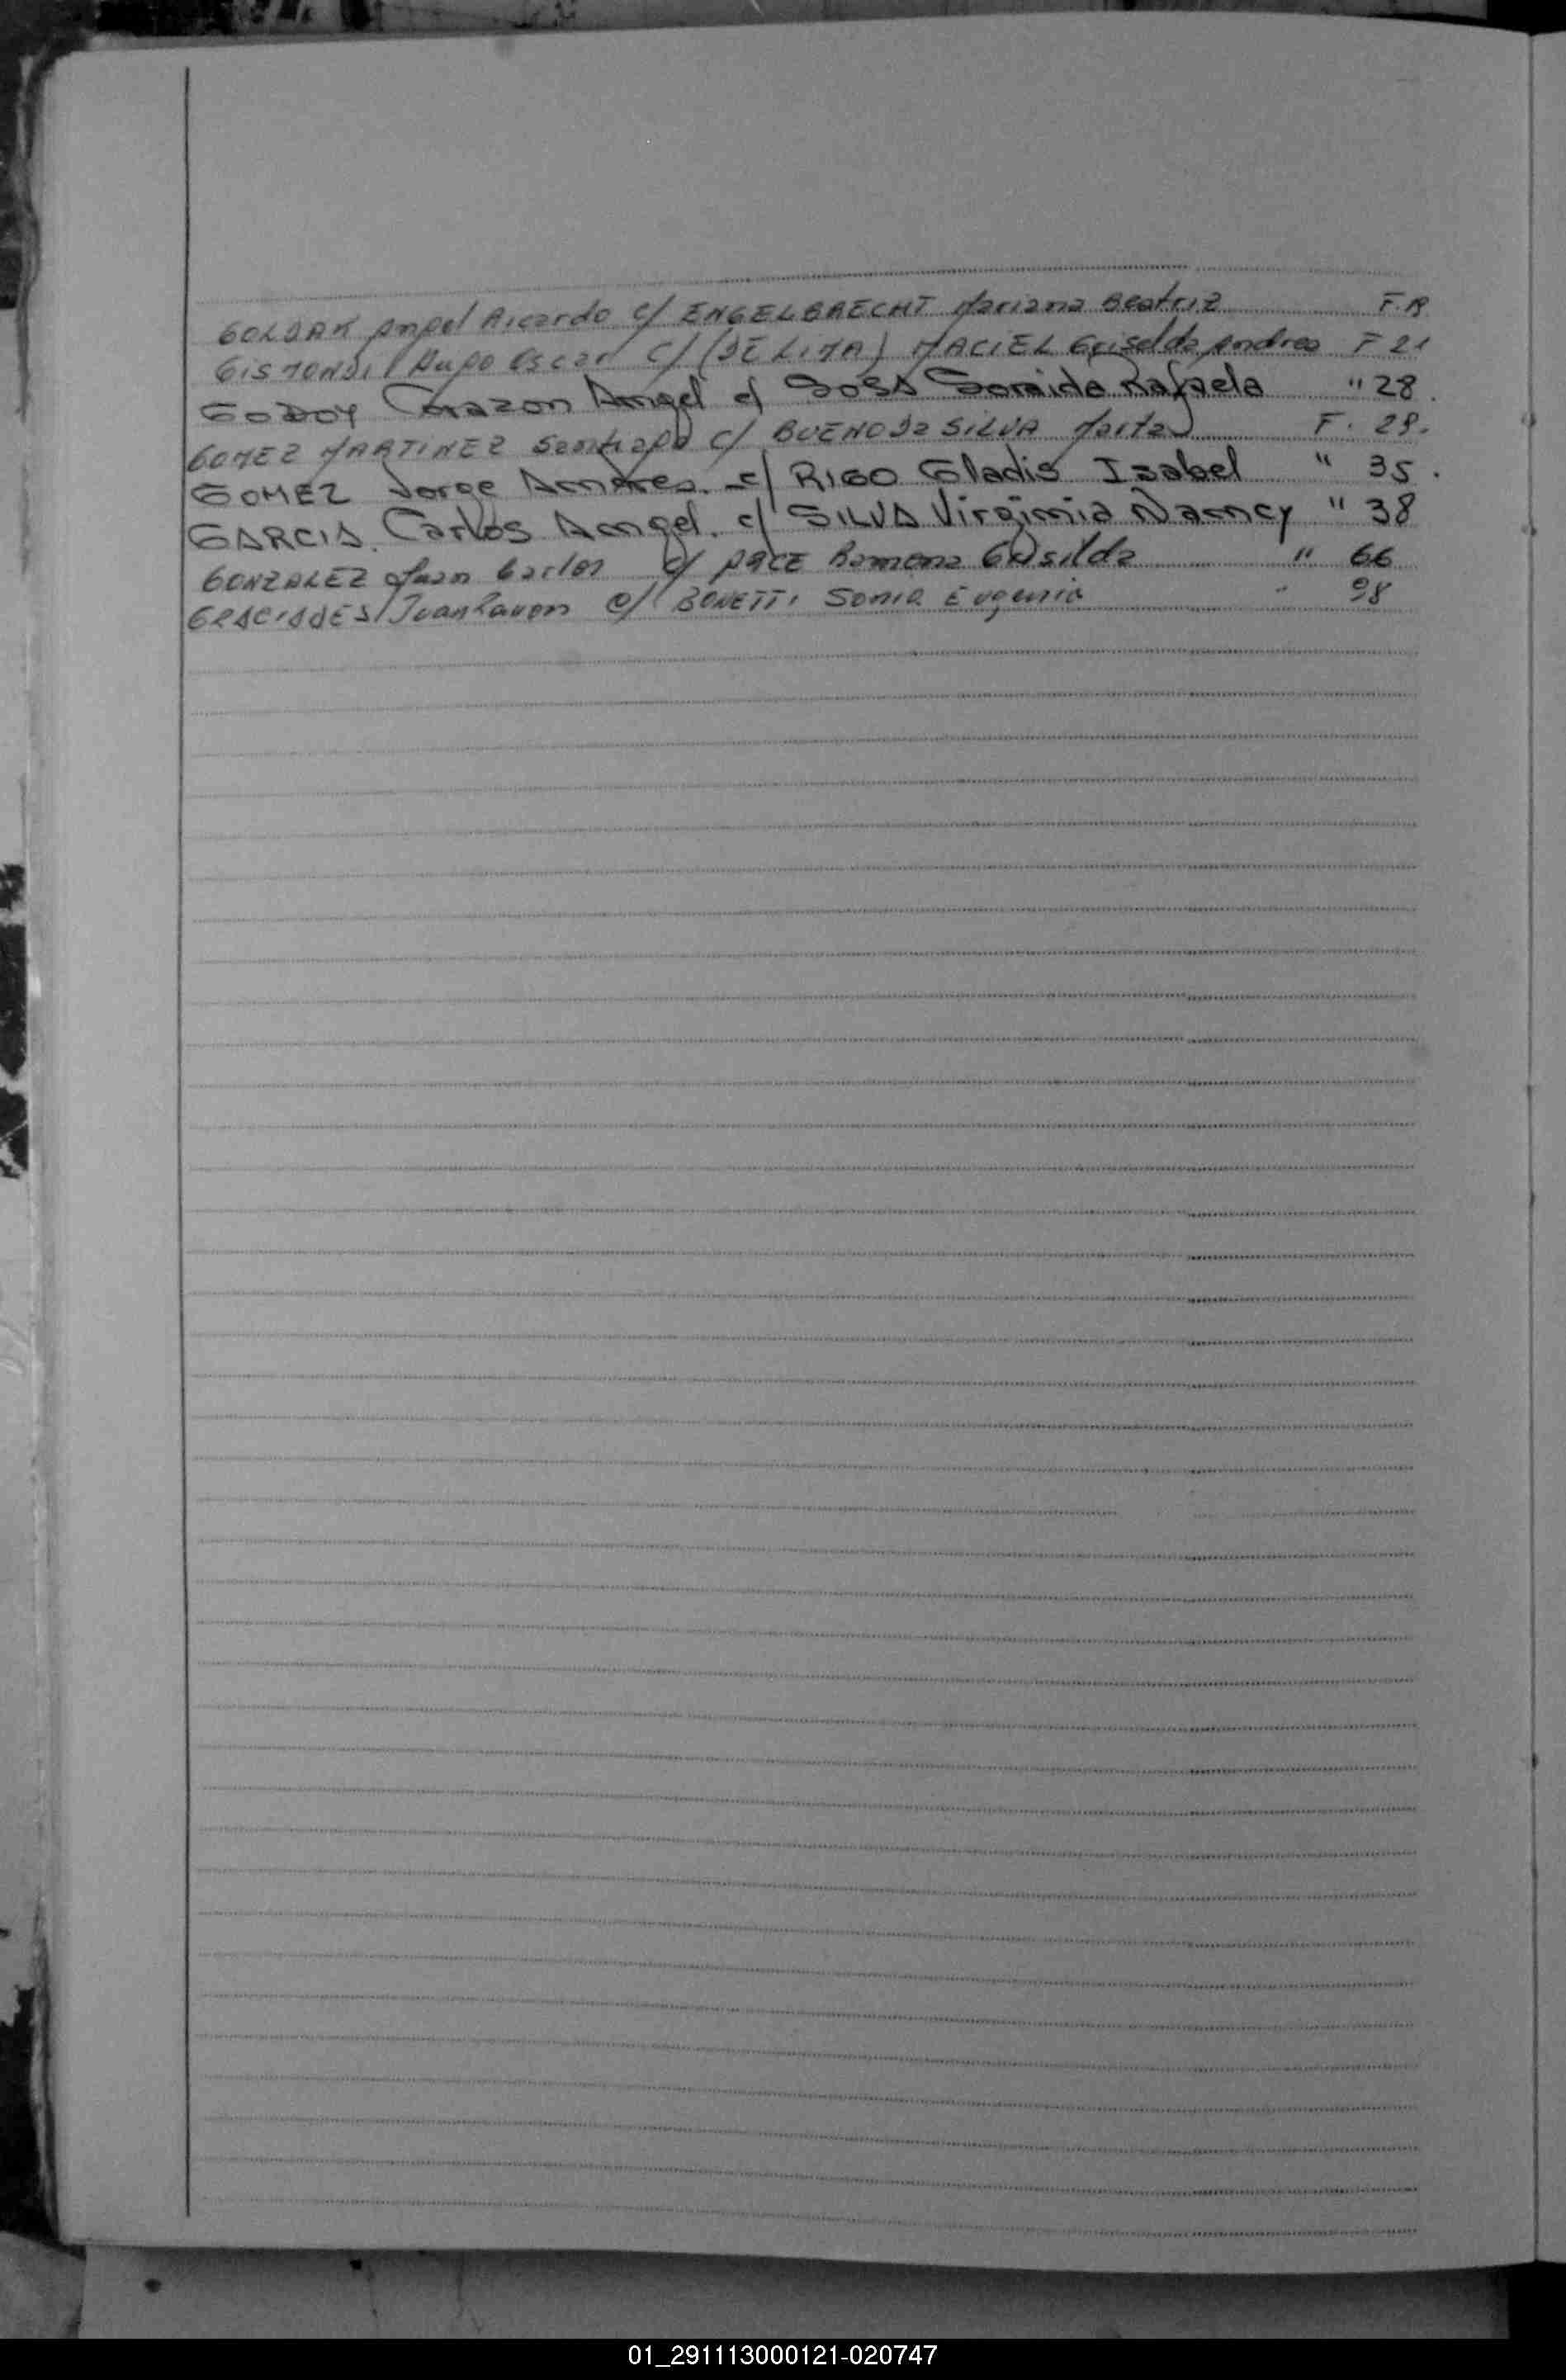 GOLDAK Angel Ricardo c/ ENGELBRECHT Mariana Beatriz F.
GISMONDI Hugo Oscar c/ (DE LIMA) MACIEL Griselda Andrea F 21
GODOY Corazon Angel c/ SOSA Soraida Rafaela " 28.
GOMEZ MARTINEZ Santiago c/ BUENO Da SILVA Marta F. 29.
GOMEZ Jorge Andres. c/ RIGO Gladis Isabel " 35.
GARCIA. Carlos Angel. c/ SILVA Virginia Nancy " 38
GONZALEZ Juan Carlos c/ PACE Ramona Casilda " 66
Juan Ramon c/ BONETTI Sonia Eugenia " 98
01_291113000121-020747